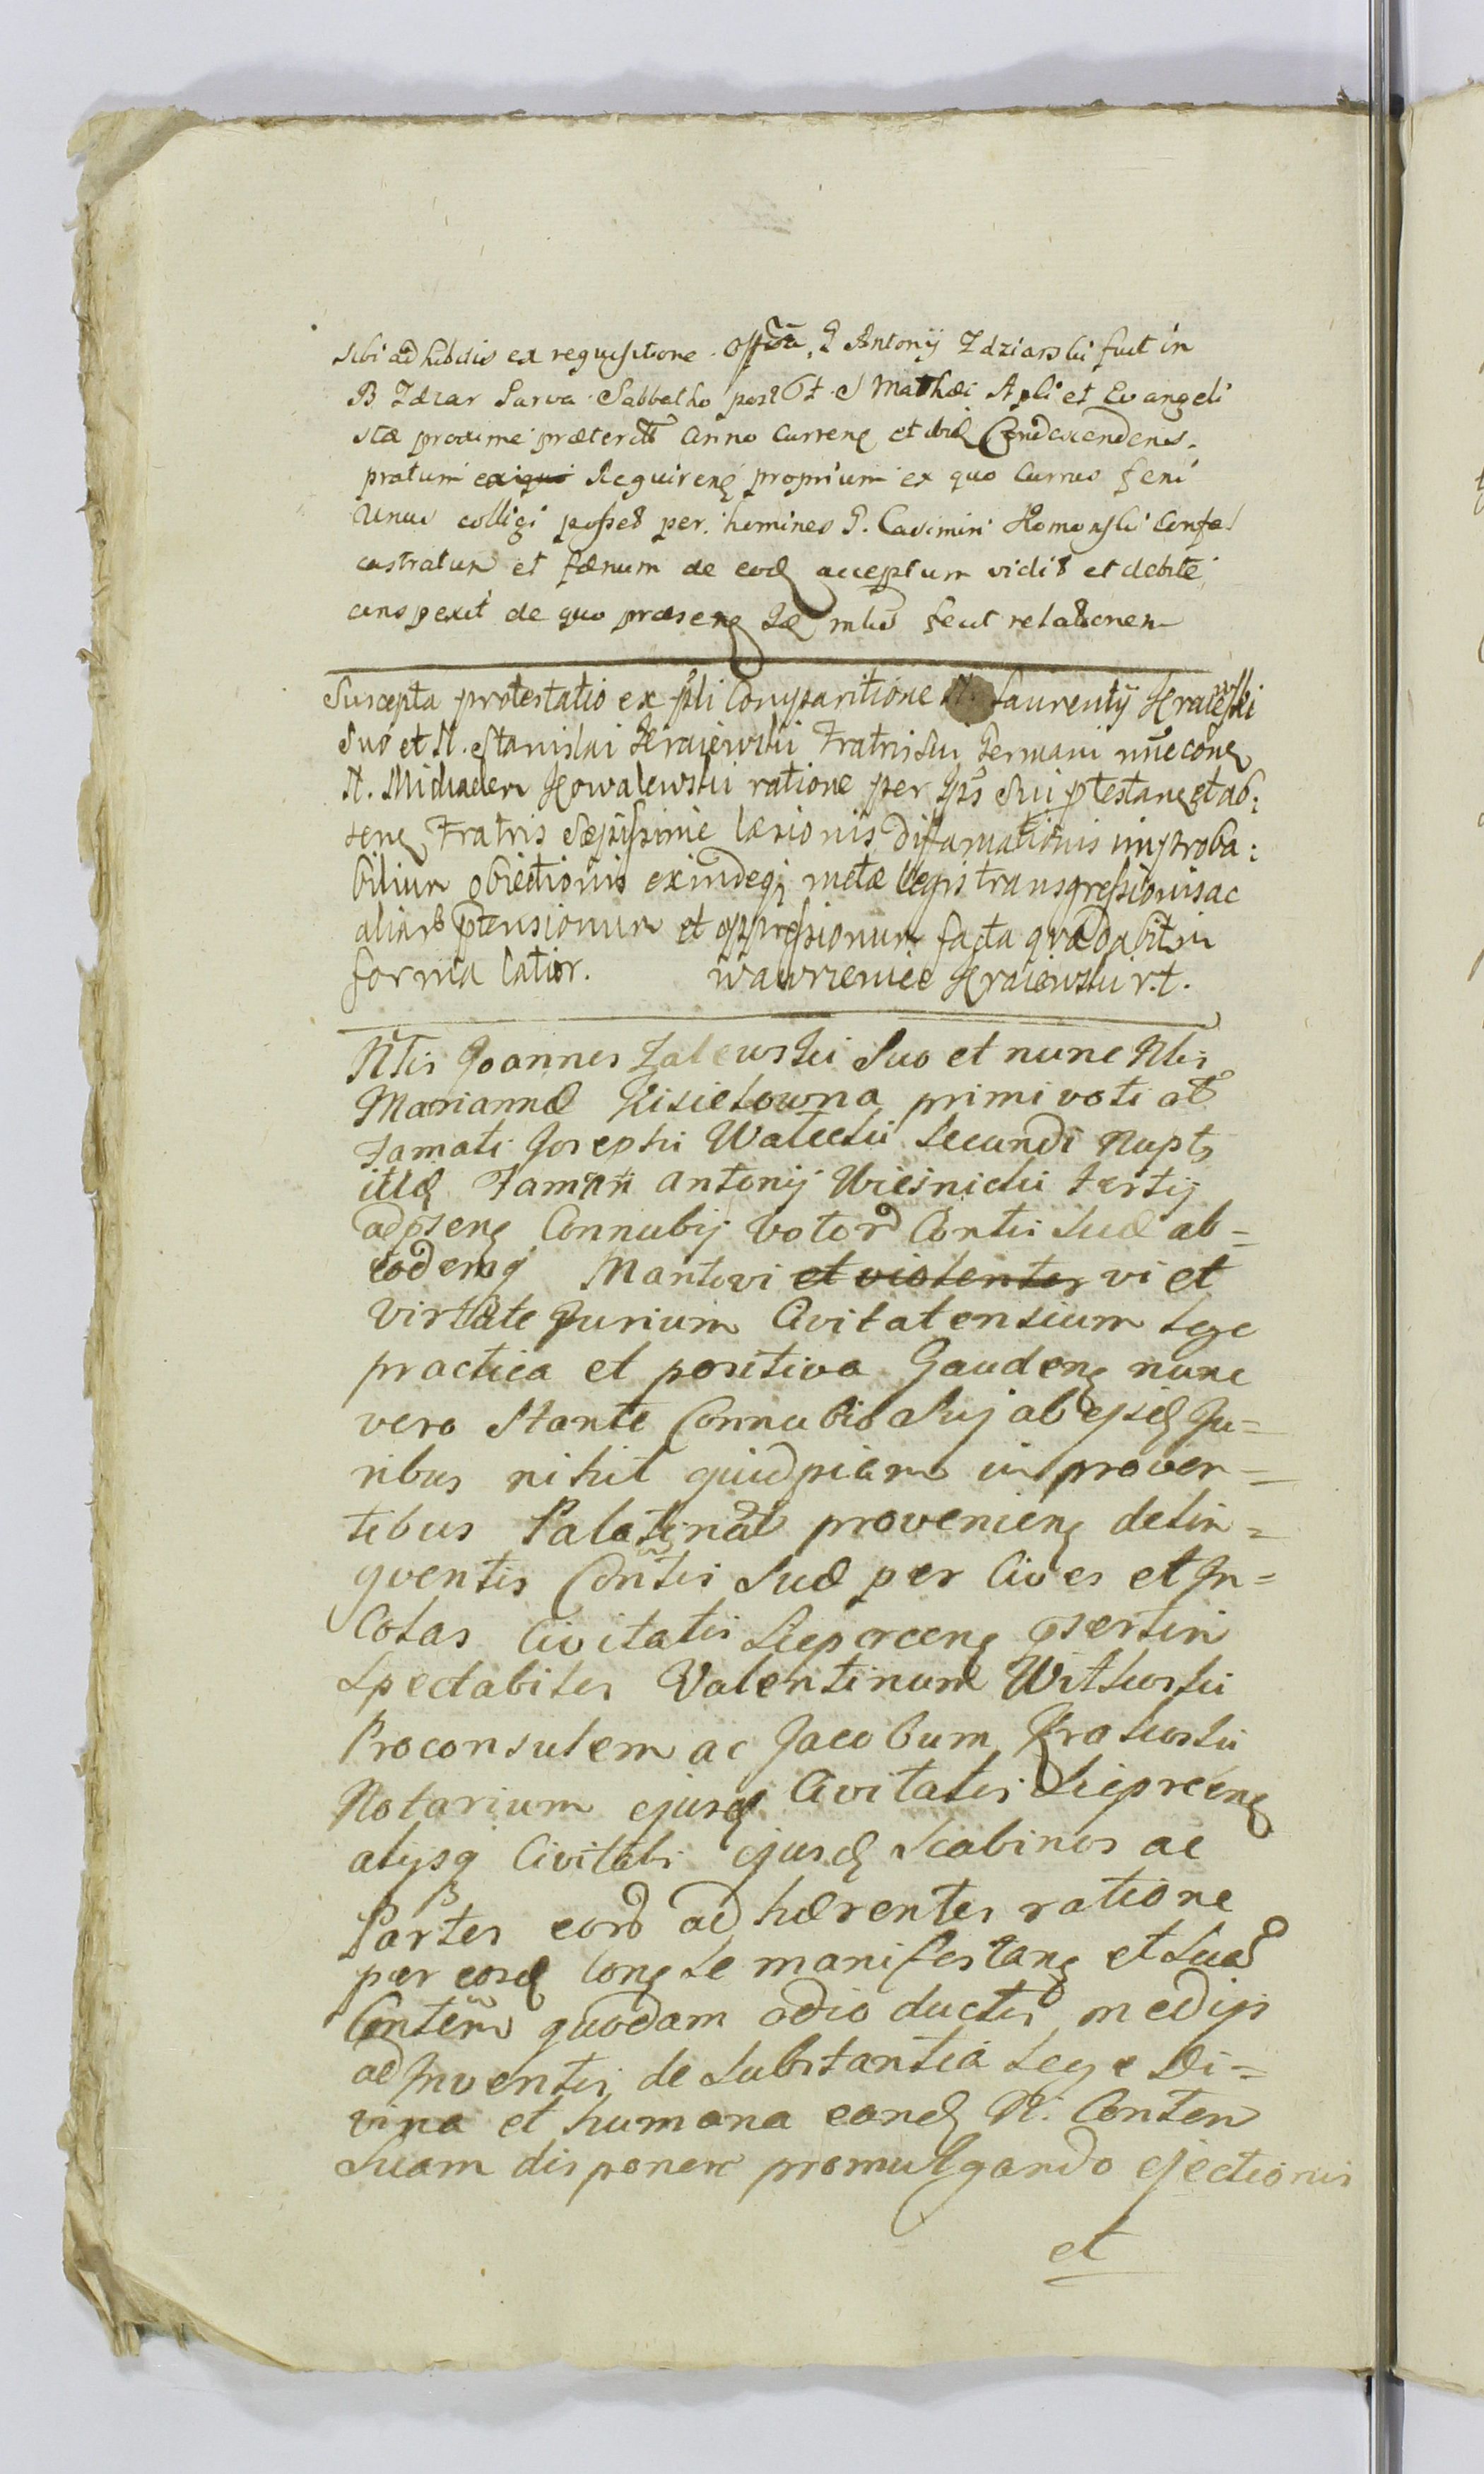 sibi adhibitis ex requisitione Offiosa G Antonij Zdziarski fuit in
B. Zdzar Parva Sabbatho post F. S Mathæi Apli et Evangeli
stæ proxime præterito Anno Curren et ibid Condescendens
pratum exiguo Requiren proprium ex quo Currus feni
Unus colligi posset per homines G. Casimiri Komonski Confal
castratum et fænum de eod acceptum vidit et debite
conspexit de quo præsens Jdæ mlis fecit relationem
Suscepta protestatio ex psli Comparitione N. Laurentij Kraiewski
Suo et N. Stanislai Kraiewski Fratris sui Germani nne cone
N. Michaelem Kowalewski ratione per Ips Sui ptestane et ab:
sene Fratris Sæpissime læsionis diffamationis improba:
bilium obiectionis exindeq metæ legis transgressionis ac
aliars ptensionum et oppressionum facta qvæ dabit in
forma latior. Wawrzeniec Kraiewski r.t.
Nlis Joannes Zalewski Suo et nunc Nlis
Mariannæ Kisielowna primi voti at
Famati Josephi Walecki Secundi Nupt
itid Famati Antonij Wiesnicki tertij
adpsene Connubij Votor Contis Suæ ab=
eodemq Mantovi et violenter vi et
Virtute Jurium Civitatensium lege
practica et positiva Gaudene nunc
vero Stante Connubio Suj ab ejsd Ju=
ribus nihil quidpiam in prover=
tibus Palatinat proveniene delin=
qventis Contis Suæ per Cives et In=
Colas Civitatis Sieprcene psertim
Spectabiles Valentinum Witkowski
Proconsulem ac Jacobum Krakowski
Notarium ejusd Civitatis Sieprcene
alijsq Civitatis ejusd Scabinos ac
Partes eors adhærentes ratione
per eosd Cone Se manifestane et Suæ
Contem quodam odio ductis medijs
adJnventis de Substantia Lege Di=
vina et humana eand N. Contem
Suam disponere promulgando ejectionis
et